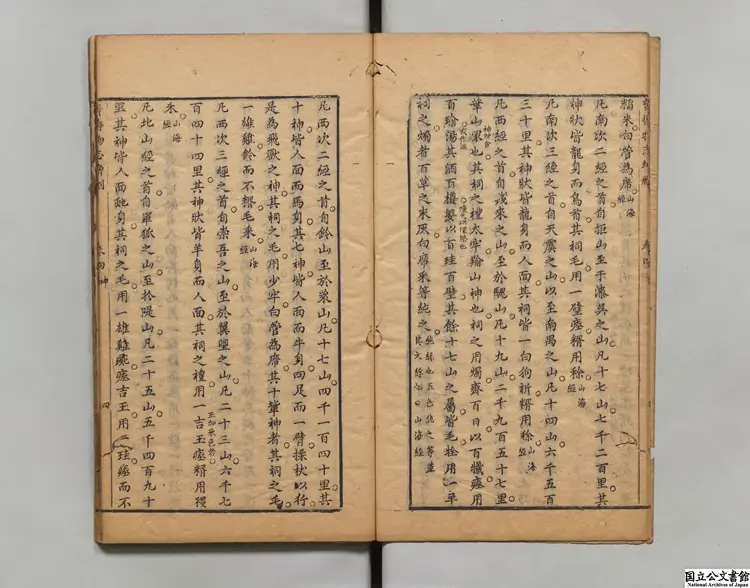 糈米白菅為席山海經
凡南次二經之首自拒山至于漆吳之山凡十七山七千二百里其
神狀皆龍身而鳥首其祠毛用一璧瘞糈用稌山海經
凡南次三經之首自天虞之山以至南禺之山凡十四山六千五百
三十里其神狀皆龍身而人面其祠皆一白狗祈糈用稌山海經
凡西經之首自錢來之山至於騩山凡十九山二千九百五十七里
華山冢也其祠之禮太牢羭山神也祠之用燭齋百日以百犧瘞用
百瑜湯其酒百樽嬰以百珪百璧其餘十七山之屬皆毛牷用一羊
祠之燭者百草之未灰白席采等純之純緣也五色純之等差其文緣也山海經
凡西次二經之首自鈐山至於萊山凡十七山四千一百四十里其
十神皆人面而馬身其七神皆人面而牛身四足而一臂操杖以行
是為飛獸之神其祠之毛用少牢白菅為席其十輩神者其祠之毛
一雄雞鈐而不糈毛采山海經
凡西次三經之首自崇吾之山至於翼望之山凡二十三山六千七
百四十四里其神狀皆羊身而人面其祠之禮用一吉玉玉加采色者瘞糈用稷
米山海經
凡北山經之首自單狐之山至於隄山凡二十五山五千四百九十
里其神皆人面蛇身其祠之毛用一雄雞彘瘞吉玉用一珪瘞而不
四
国立公文書館
National Archives of Japan